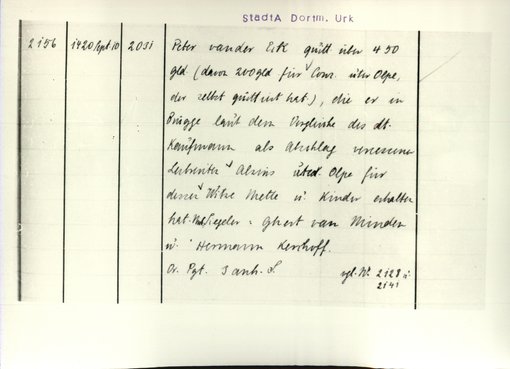 StadtA Dortm. Urk
2156 1420 Sept. 10 2031 Peter vander Eck quitt über 450
gld (davon 200 gld für Conr. über Olpe,
der selbst quittiert hat), die er in
Brügge laut dem Vergleiche des dt.
Kaufmanns als Abschlag
Alwins Olpe für
dessen Witwe Mette u. Kinder erhalten
hat. Siegeler: Ghert van Minden
u. Hermann Kerchoff.
Or. Pgt. 3 anh. S. vgl. Nr. 2128 u.
2141